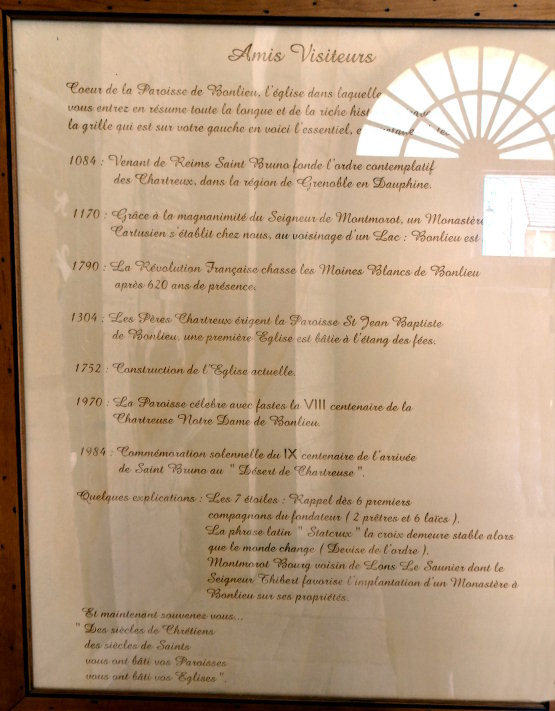 Amis Visiteurs
Coeur de la Paroisse de Bonlieu, l'église dans laquelle
vous entrez en résume toute la longue et de la riche
la grille qui est sur votre gauche en voici l'essentiel,
1084 : Venant de Reims Saint Bruno fonde l'ordre contemplatif
des Chartreux, dans la région de Grenoble en Dauphine.
1170 : Grâce à la magnanimité du Seigneur de Montmorot, un Monastère
Cartusien s'établit chez nous, au voisinage d'un Lac : Bonlieu est
1790 : La Révolution Française chasse les Moines Blancs de Bonlieu
après 620 ans de présence.
1304 : Les Pères Chartreux érigent la Paroisse St Jean Baptiste
de Bonlieu, une première Eglise est bâtie à l'étang des fées.
1752 : Construction de l'Eglise actuelle.
1970 : La Paroisse célebre avec fastes la VIII centenaire de la
Chartreuse Notre Dame de Bonlieu.
1984 : Commémoration solennelle du IX centenaire de l'arrivée
de Saint Bruno au " Désert de Chartreuse ".
Quelques explications : Les 7 étoiles : Rappel dès 6 premiers
compagnons du fondateur ( 2 prêtres et 6 laïcs ).
La phrase latin " Statcrux " la croix demeure stable alors
que le monde change ( Devise de l'ordre ).
Montmorot Bourg voisin de Lons Le Saunier dont le
Seigneur Thibert favorise l'implantation d'un Monastère à
Bonlieu sur ses propriétés.
Et maintenant souvenez vous...
" Des siècles de Chrétiens
des siècles de Saints
vous ont bâti vos Paroisses
vous ont bâti vos Eglises ".